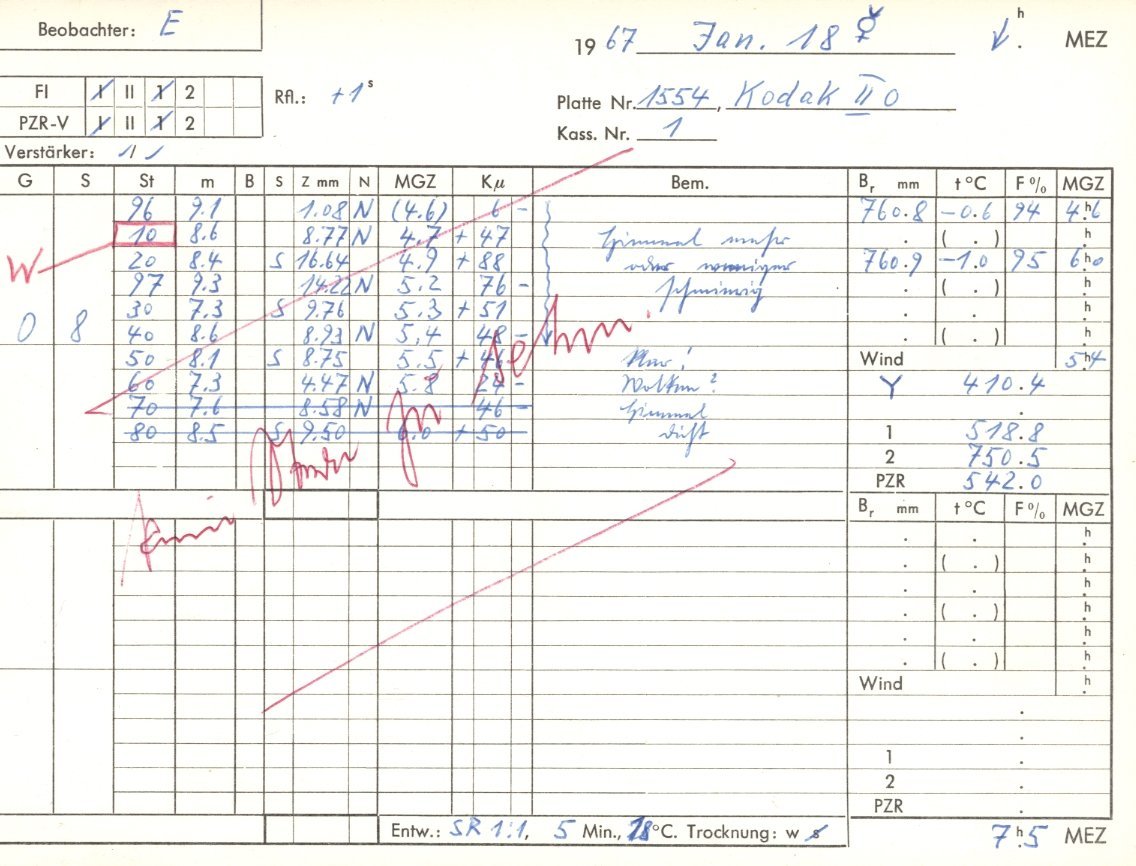 Beobachter: E
1967 Jan. 18 ☿ h . MEZ
FI I II 1 2
Rfl.: +1 s
Platte Nr. 1554, Kodak II O
PZR-V I II 1 2
Kass. Nr. 1
Verstärker: / /
G S St m B S Z mm N MGZ Kμ Bem. Br mm t °C F % MGZ
96 9.1 1.08 N (4.6) 6 - 760.8 -0.6 94 4h.6
10 8.6 8.77 N 4.7 + 47 Himmel mehr . ( . ) h.
W
20 8.4 S 16.64 4.9 + 88 oder weniger 760.9 -1.0 95 6h.0
97 9.3 14.22 N 5.2 76 - schmierig . ( . ) h.
30 7.3 S 9.76 5.3 + 51 . . h.
0 8 40 8.6 8.93 N 5.4 48 - . ( . ) h.
50 8.1 S 8.75 5.5 + 46 klar! Wind 5h.4
60 7.3 4.47 N 5.8 24 - Wolken? Y 410.4
70 7.6 8.58 N 46 - Himmel .
80 8.5 S 9.50 6.0 + 50 dicht 1 518.8
2 750.5
PZR 542.0
keine Sterne zu sehn.
Br mm t °C F % MGZ
. . h.
. ( . ) h.
. . h.
. ( . ) h.
. . h.
. ( . ) h.
Wind h.
.
.
1 .
2 .
PZR .
Entw.: SR 1:1, 5 Min., 18 °C. Trocknung: w s
7h.5 MEZ